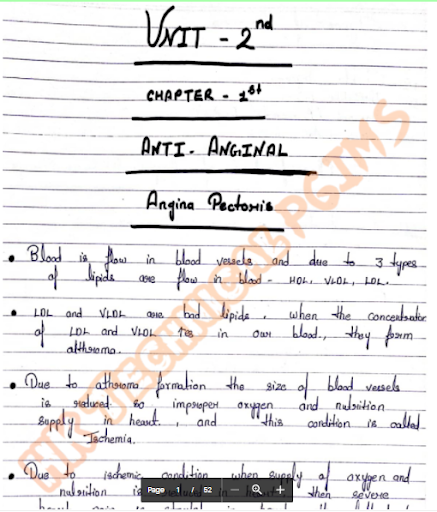 UNIT - 2nd
CHAPTER - 1st
ANTI - ANGINAL
Angina Pectoris
• Blood is flow in blood vessels and due to 3 types
of lipids are flow in blood - HDL, VLDL, LDL.
• LDL and VLDL are bad lipids, when the concentrator
of LDL and VLDL in our blood, they form
atthroma.
• Due to athroma formation the size of blood vessels
is reduced so improper oxygen and nutrition
supply in heart, and this condition is called
Ischemia.
• Due to ischemic condition when supply of oxygen and
nutrition is in then severe
Page 1 / 52